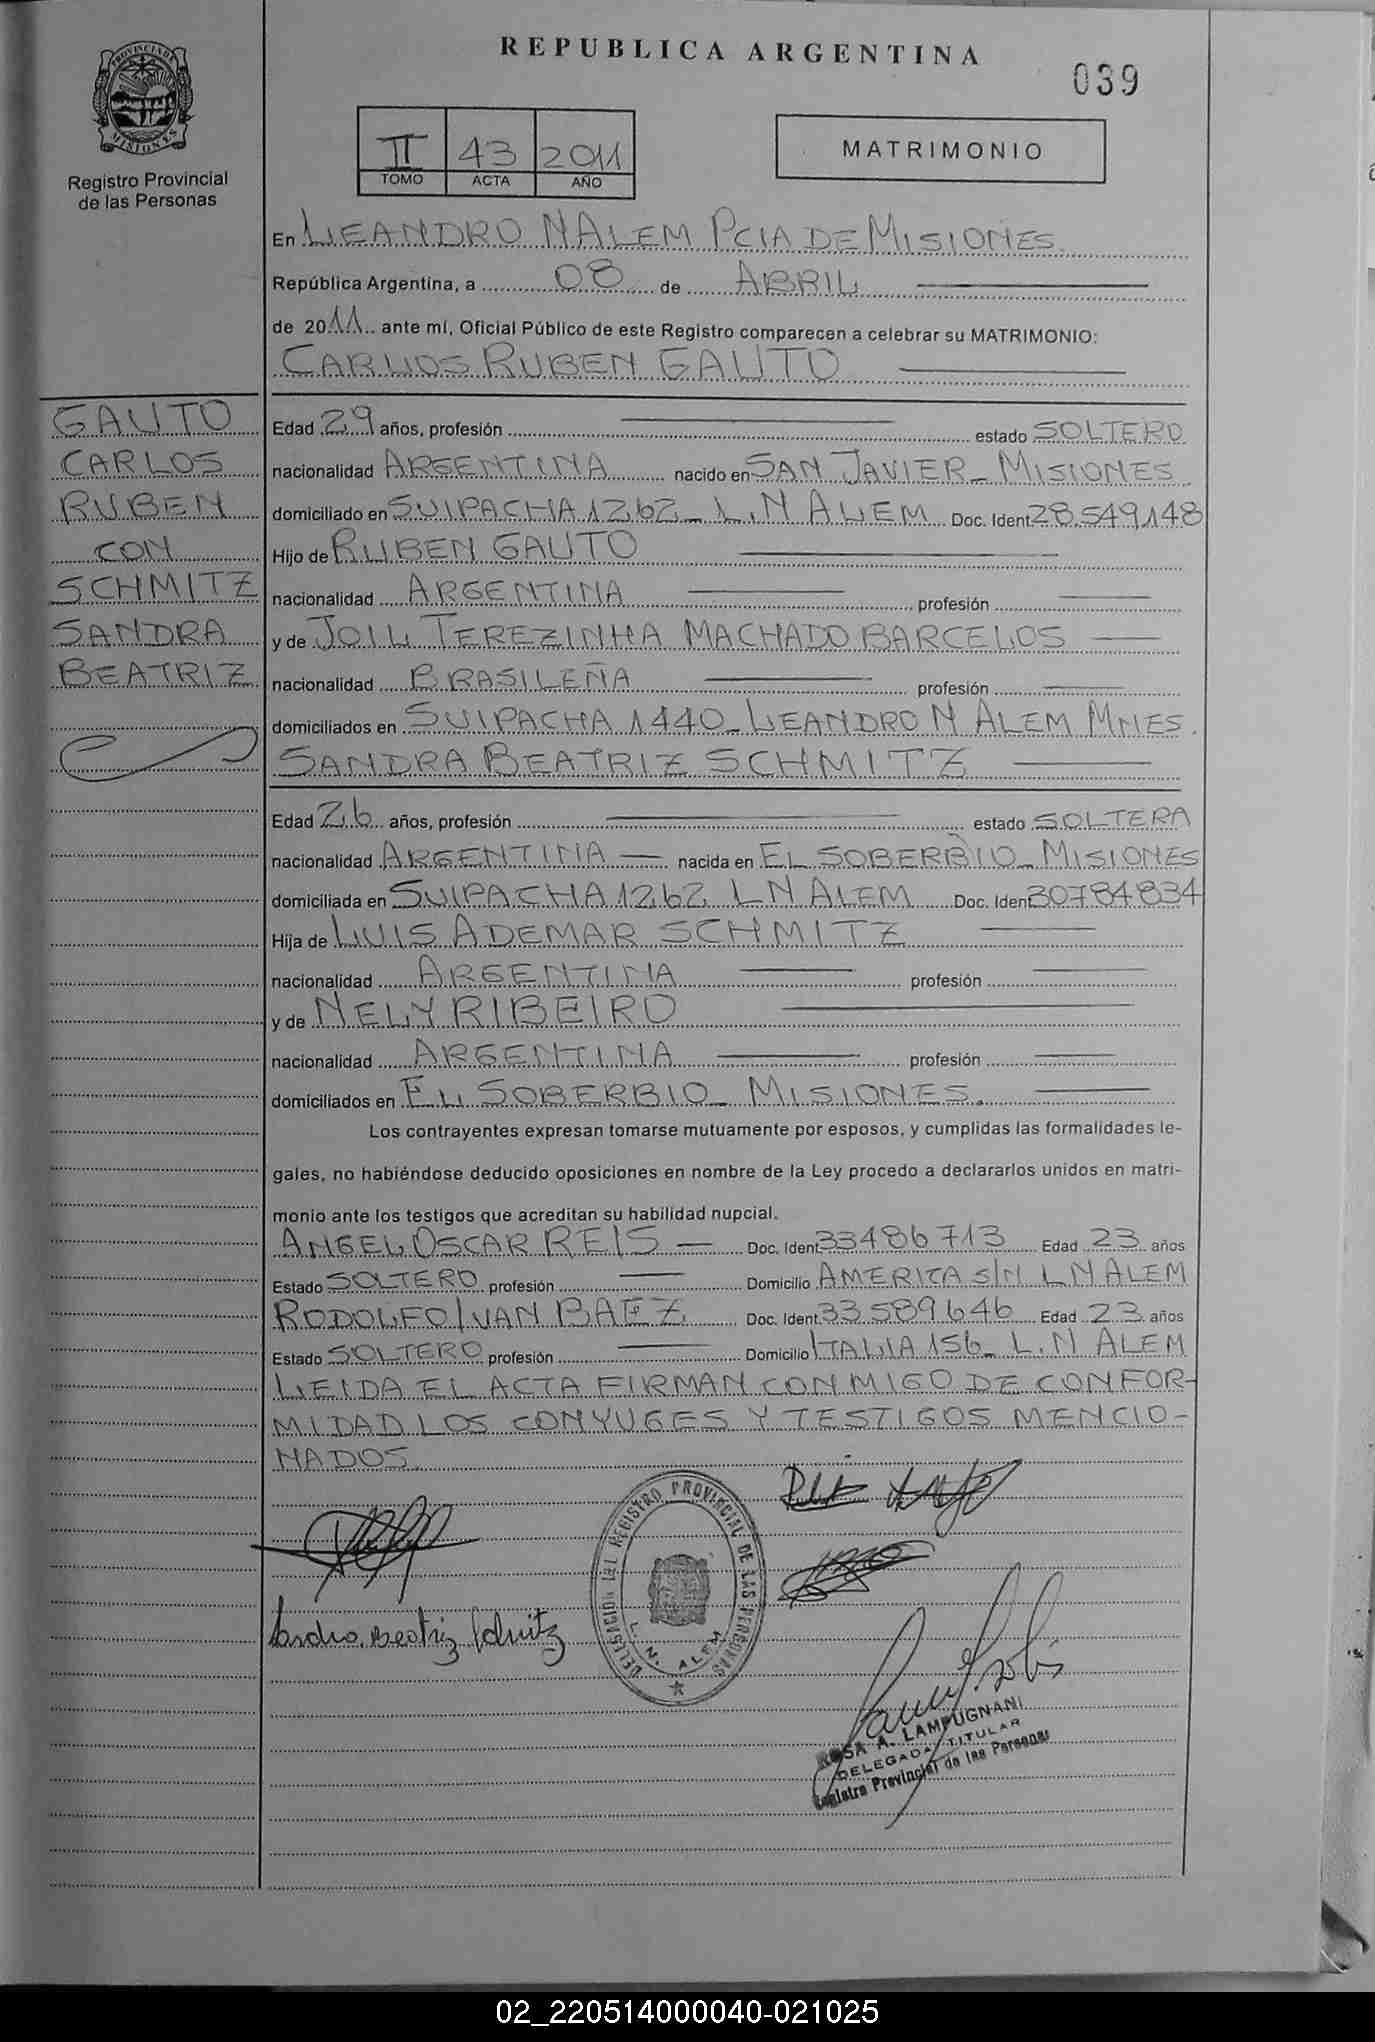 REPUBLICA ARGENTINA
039
PROVINCIA DE MISIONES
Registro Provincial
de las Personas
II 43 2011
TOMO ACTA AÑO
MATRIMONIO
En LEANDRO N ALEM PCIA DE MISIONES
República Argentina, a 08 de ABRIL
de 2011 ante mí, Oficial Público de este Registro comparecen a celebrar su MATRIMONIO:
CARLOS RUBEN GAUTO
GAUTO
CARLOS
RUBEN
CON
SCHMITZ
SANDRA
BEATRIZ
Edad 29 años, profesión estado SOLTERO
nacionalidad ARGENTINA nacido en SAN JAVIER - MISIONES
domiciliado en SUIPACHA 1262 - L.N ALEM Doc. Ident 28.549.148
Hijo de RUBEN GAUTO
nacionalidad ARGENTINA profesión
y de JOIL TEREZINHA MACHADO BARCELOS
nacionalidad BRASILEÑA profesión
domiciliados en SUIPACHA 1440 - LEANDRO N ALEM MNES.
SANDRA BEATRIZ SCHMITZ
Edad 26 años, profesión estado SOLTERA
nacionalidad ARGENTINA nacida en EL SOBERBIO - MISIONES
domiciliada en SUIPACHA 1262 L N ALEM Doc. Iden 30784834
Hija de LUIS ADEMAR SCHMITZ
nacionalidad ARGENTINA profesión
y de NELY RIBEIRO
nacionalidad ARGENTINA profesión
domiciliados en EL SOBERBIO - MISIONES.
Los contrayentes expresan tomarse mutuamente por esposos, y cumplidas las formalidades le-
gales, no habiéndose deducido oposiciones en nombre de la Ley procedo a declararlos unidos en matri-
monio ante los testigos que acreditan su habilidad nupcial.
ANGEL OSCAR REIS - Doc. Ident 33486713 Edad 23 años
Estado SOLTERO profesión Domicilio AMERICA S/N L N ALEM
RODOLFO IVAN BAEZ Doc. Ident 33589646 Edad 23 años
Estado SOLTERO profesión Domicilio ITALIA 156 - L.N ALEM
LEIDA EL ACTA FIRMAN CONMIGO DE CONFOR-
MIDAD LOS CONYUGES Y TESTIGOS MENCIO-
NADOS.
DELEGACION DEL REGISTRO PROVINCIAL DE LAS PERSONAS
L. N. ALEM
Sandra Beatriz Schmitz
ROSA A. LAMPUGNANI
DELEGADA TITULAR
Registro Provincial de las Personas
02_220514000040-021025